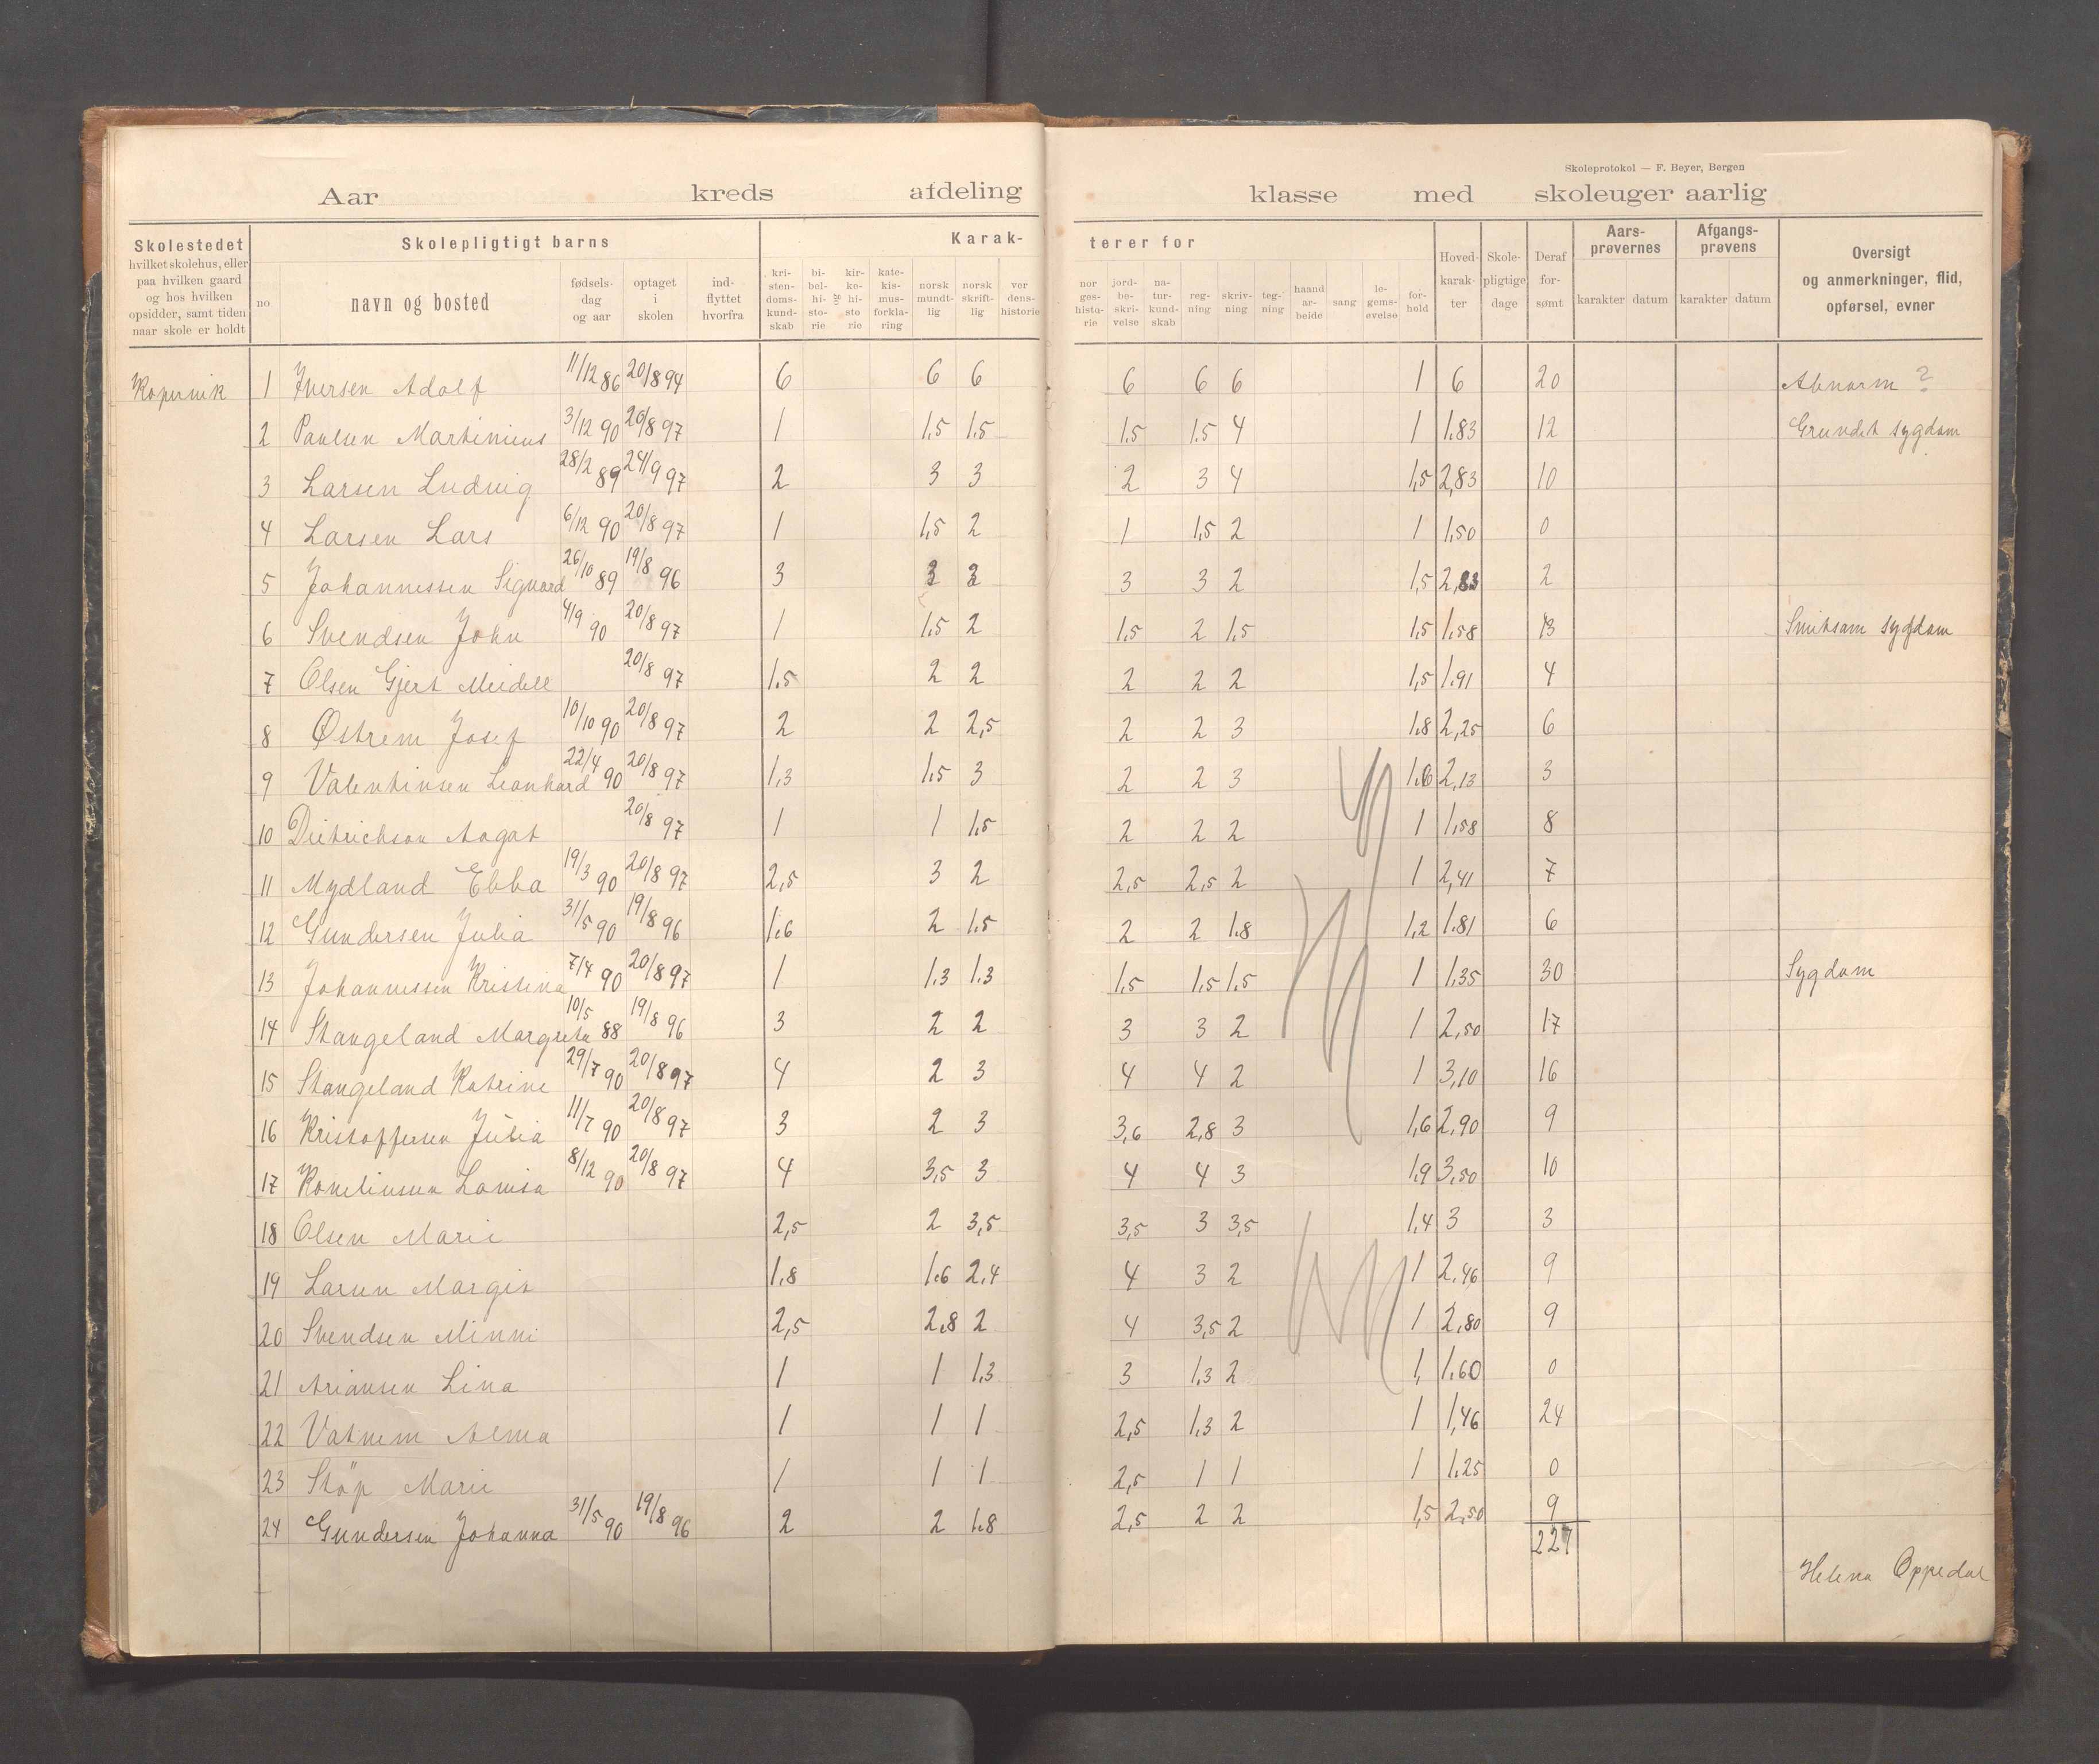 Skoleprotokol — F. Beyer, Bergen
Aar kreds afdeling klasse med skoleuger aarlig
Skolestedet
hvilket skolehus, eller
paa hvilken gaard
og hos hvilken
opsidder, samt tiden
naar skole er holdt
Skolepligtigt barns
no
navn og bosted
fødsels-
dag
og aar
optaget
i
skolen
ind-
flyttet
hvorfra
Karak-
kri-
sten-
doms-
kund-
skab
bi-
bel-
hi-
sto-
rie
og
kir-
ke-
hi-
sto
rie
kate-
kis-
mus-
forkla-
ring
norsk
mundt-
lig
norsk
skrift-
lig
ver
dens-
historie
terer for
nor
ges-
histo-
rie
jord-
be-
skri-
velse
na-
tur-
kund-
skab
reg-
ning
skriv-
ning
teg-
ning
haand
ar-
beide
sang
le-
gems-
øvelse
for-
hold
Hoved-
karak-
ter
Skole-
pligtige
dage
Deraf
for-
sømt
Aars-
prøvernes
karakter datum
Afgangs-
prøvens
karakter datum
Oversigt
og anmerkninger, flid,
opførsel, evner
Kopervik 1 Iversen Adolf 11/12 86 20/8 94 6 6 6 6 6 6 1 6 20 Abnorm ?
2 Paulsen Martinius 3/12 90 20/8 97 1 1,5 1.5 1.5 1.5 4 1 1.83 12 Grundet sygdom
3 Larsen Ludvig 28/2 89 24/9 97 2 3 3 2 3 4 1,5 2,83 10
4 Larsen Lars 6/12 90 20/8 97 1 1,5 2 1 1,5 2 1 1,50 0
5 Johannessen Sigvard 26/10 89 19/8 96 3 3 3 3 3 2 1,5 2,83 2
6 Svendsen John 4/9 90 20/8 97 1 1.5 2 1.5 2 1.5 1,5 1,58 13 Smitsom sygdom
7 Olsen Gjert Meidell 20/8 97 1.5 2 2 2 2 2 1,5 1.91 4
8 Østrem Josef 10/10 90 20/8 97 2 2 2,5 2 2 3 1.8 2,25 6
9 Valentinsen Leonhard 22/4 90 20/8 97 1,3 1.5 3 2 2 3 1.6 2,13 3
10 Dietrichson Aagot 20/8 97 1 1 1.5 2 2 2 1 1,58 8
11 Mydland Ebba 19/3 90 20/8 97 2,5 3 2 2,5 2,5 2 1 2,41 7
12 Gundersen Julia 31/5 90 19/8 96 1.6 2 1.5 2 2 1.8 1,2 1.81 6
13 Johannessen Kristina 7/4 90 20/8 97 1 1.3 1.3 1.5 1.5 1.5 1 1.35 30 Sygdom
14 Stangeland Margreta 10/5 88 19/8 96 3 2 2 3 3 2 1 2,50 17
15 Stangeland Katrine 29/7 90 20/8 97 4 2 3 4 4 2 1 3,10 16
16 Kristoffersen Julia 11/7 90 20/8 97 3 2 3 3,6 2,8 3 1,6 2,90 9
17 Kornelinsen Lovisa 8/12 90 20/8 97 4 3,5 3 4 4 3 1,9 3,50 10
18 Olsen Marie 2,5 2 3,5 3,5 3 3,5 1,4 3 3
19 Larsen Margit 1.8 1.6 2.4 4 3 2 1 2.46 9
20 Svendsen Minni 2,5 2.8 2 4 3,5 2 1 2,80 9
21 Ariansen Lina 1 1 1.3 3 1.3 2 1, 1.60 0
22 Vatnem Alma 1 1 1 2,5 1.3 2 1 1,46 24
23 Støp Marie 1 1 1 2,5 1 1 1 1.25 0
24 Gundersen Johanna 31/5 90 19/8 96 2 2 1.8 2,5 2 2 1,5 2,50 9
227
Helena Oppedal